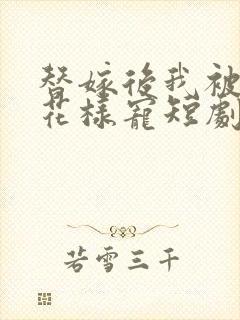 替嫁後我被
花樣寵短劇
若雪三千